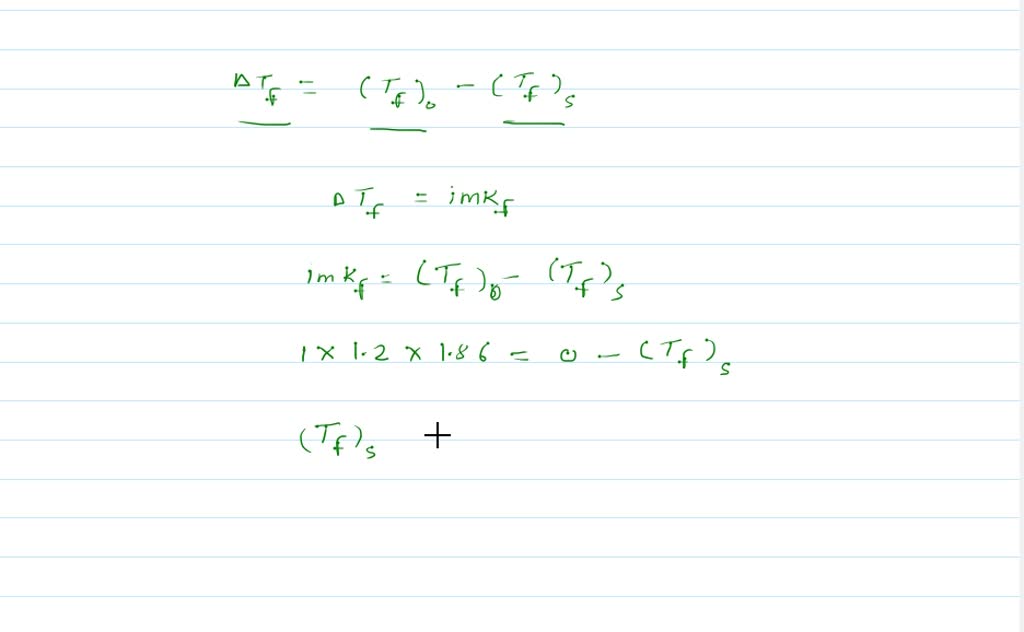 ΔT_f = (T_f)_o − (T_f)_s
ΔT_f = imK_f
imK_f = (T_f)_o − (T_f)_s
1 × 1.2 × 1.86 = 0 − (T_f)_s
(T_f)_s